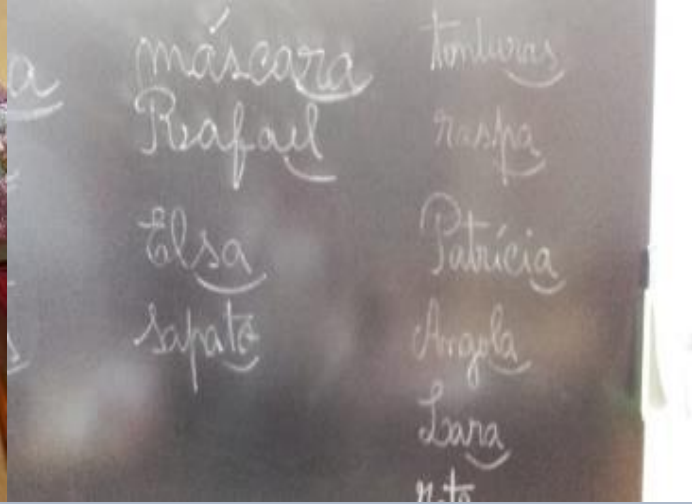 a
máscara
Rafael
Elsa
sapato
tonturas
raspa
Patrícia
Angola
Lara